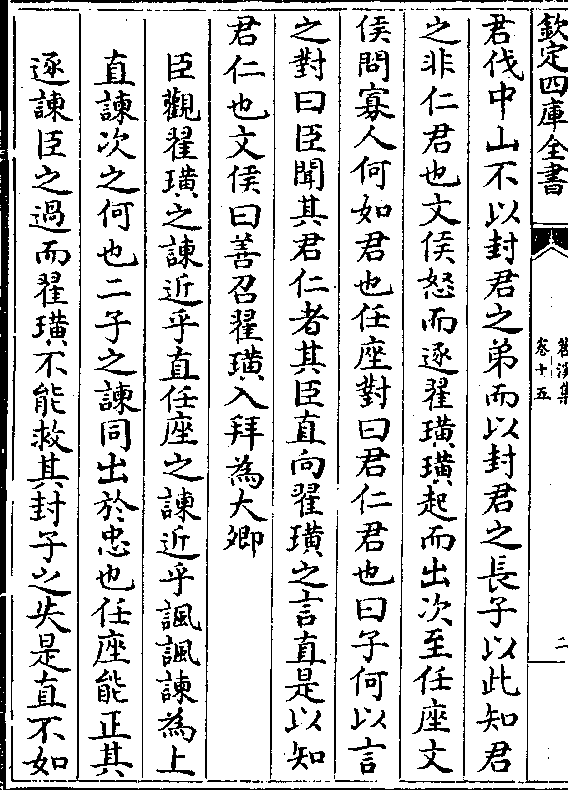 欽定四庫全書
苕溪集
卷十五
二
君伐中山不以封君之弟而以封君之長子以此知君
之非仁君也文侯怒而逐翟璜璜起而出次至任座文
侯問寡人何如君也任座對曰君仁君也曰子何以言
之對曰臣聞其君仁者其臣直向翟璜之言直是以知
君仁也文侯曰善召翟璜入拜為大卿
臣觀翟璜之諫近乎直任座之諫近乎諷諷諫為上
直諫次之何也二子之諫同出於忠也任座能正其
逐諫臣之過而翟璜不能救其封子之失是直不如